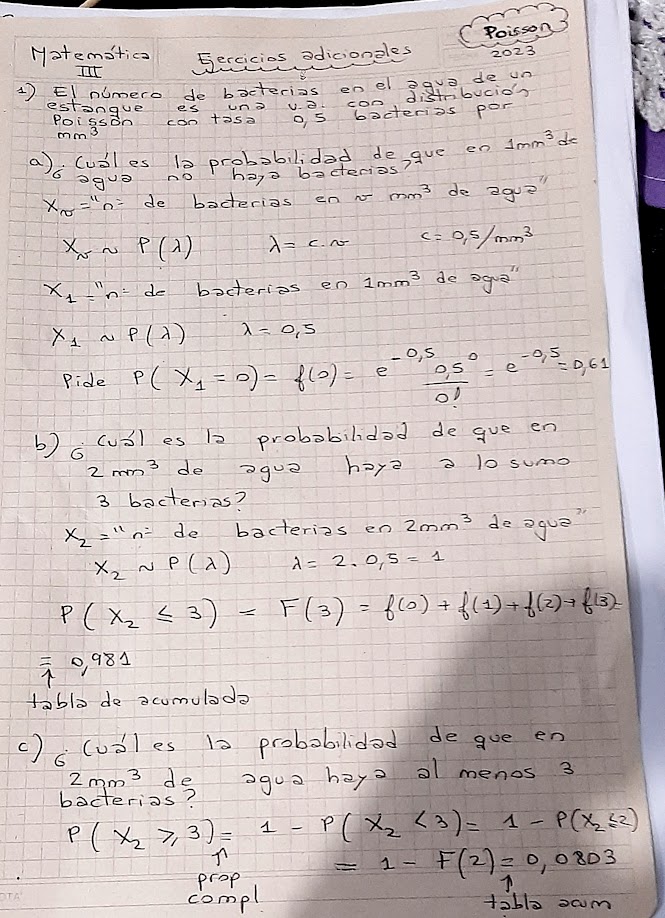 Matemática III
Ejercicios adicionales
Poisson
2023
1) El número de bacterias en el agua de un
estanque es una v.a. con distribución
Poisson con tasa 0,5 bacterias por
mm³
a) ¿Cuál es la probabilidad de que en 1mm³ de
agua no haya bacterias?
Xᵥ = "nº de bacterias en v mm³ de agua"
Xᵥ ~ P(λ) λ = c.v c = 0,5/mm³
X₁ = "nº de bacterias en 1mm³ de agua"
X₁ ~ P(λ) λ = 0,5
Pide P(X₁ = 0) = f(0) = e^(-0,5) 0,5⁰/0! = e^(-0,5) = 0,61
b) ¿Cuál es la probabilidad de que en
2mm³ de agua haya a lo sumo
3 bacterias?
X₂ = "nº de bacterias en 2mm³ de agua"
X₂ ~ P(λ) λ = 2.0,5 = 1
P(X₂ ≤ 3) = F(3) = f(0) + f(1) + f(2) + f(3)
= 0,981
↑
tabla de acumulada
c) ¿Cuál es la probabilidad de que en
2mm³ de agua haya al menos 3
bacterias?
P(X₂ ≥ 3) = 1 - P(X₂ < 3) = 1 - P(X₂ ≤ 2)
= 1 - F(2) = 0,0803
↑ prop compl
↑ tabla acum